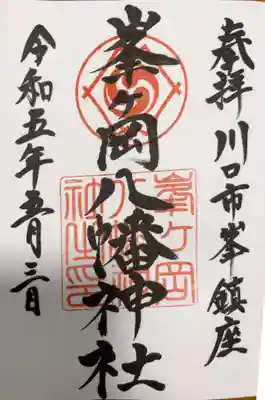 奉拝 川口市峯鎮座
峯ヶ岡八幡神社
峯ヶ岡
八幡神
社之印
令和五年五月三日